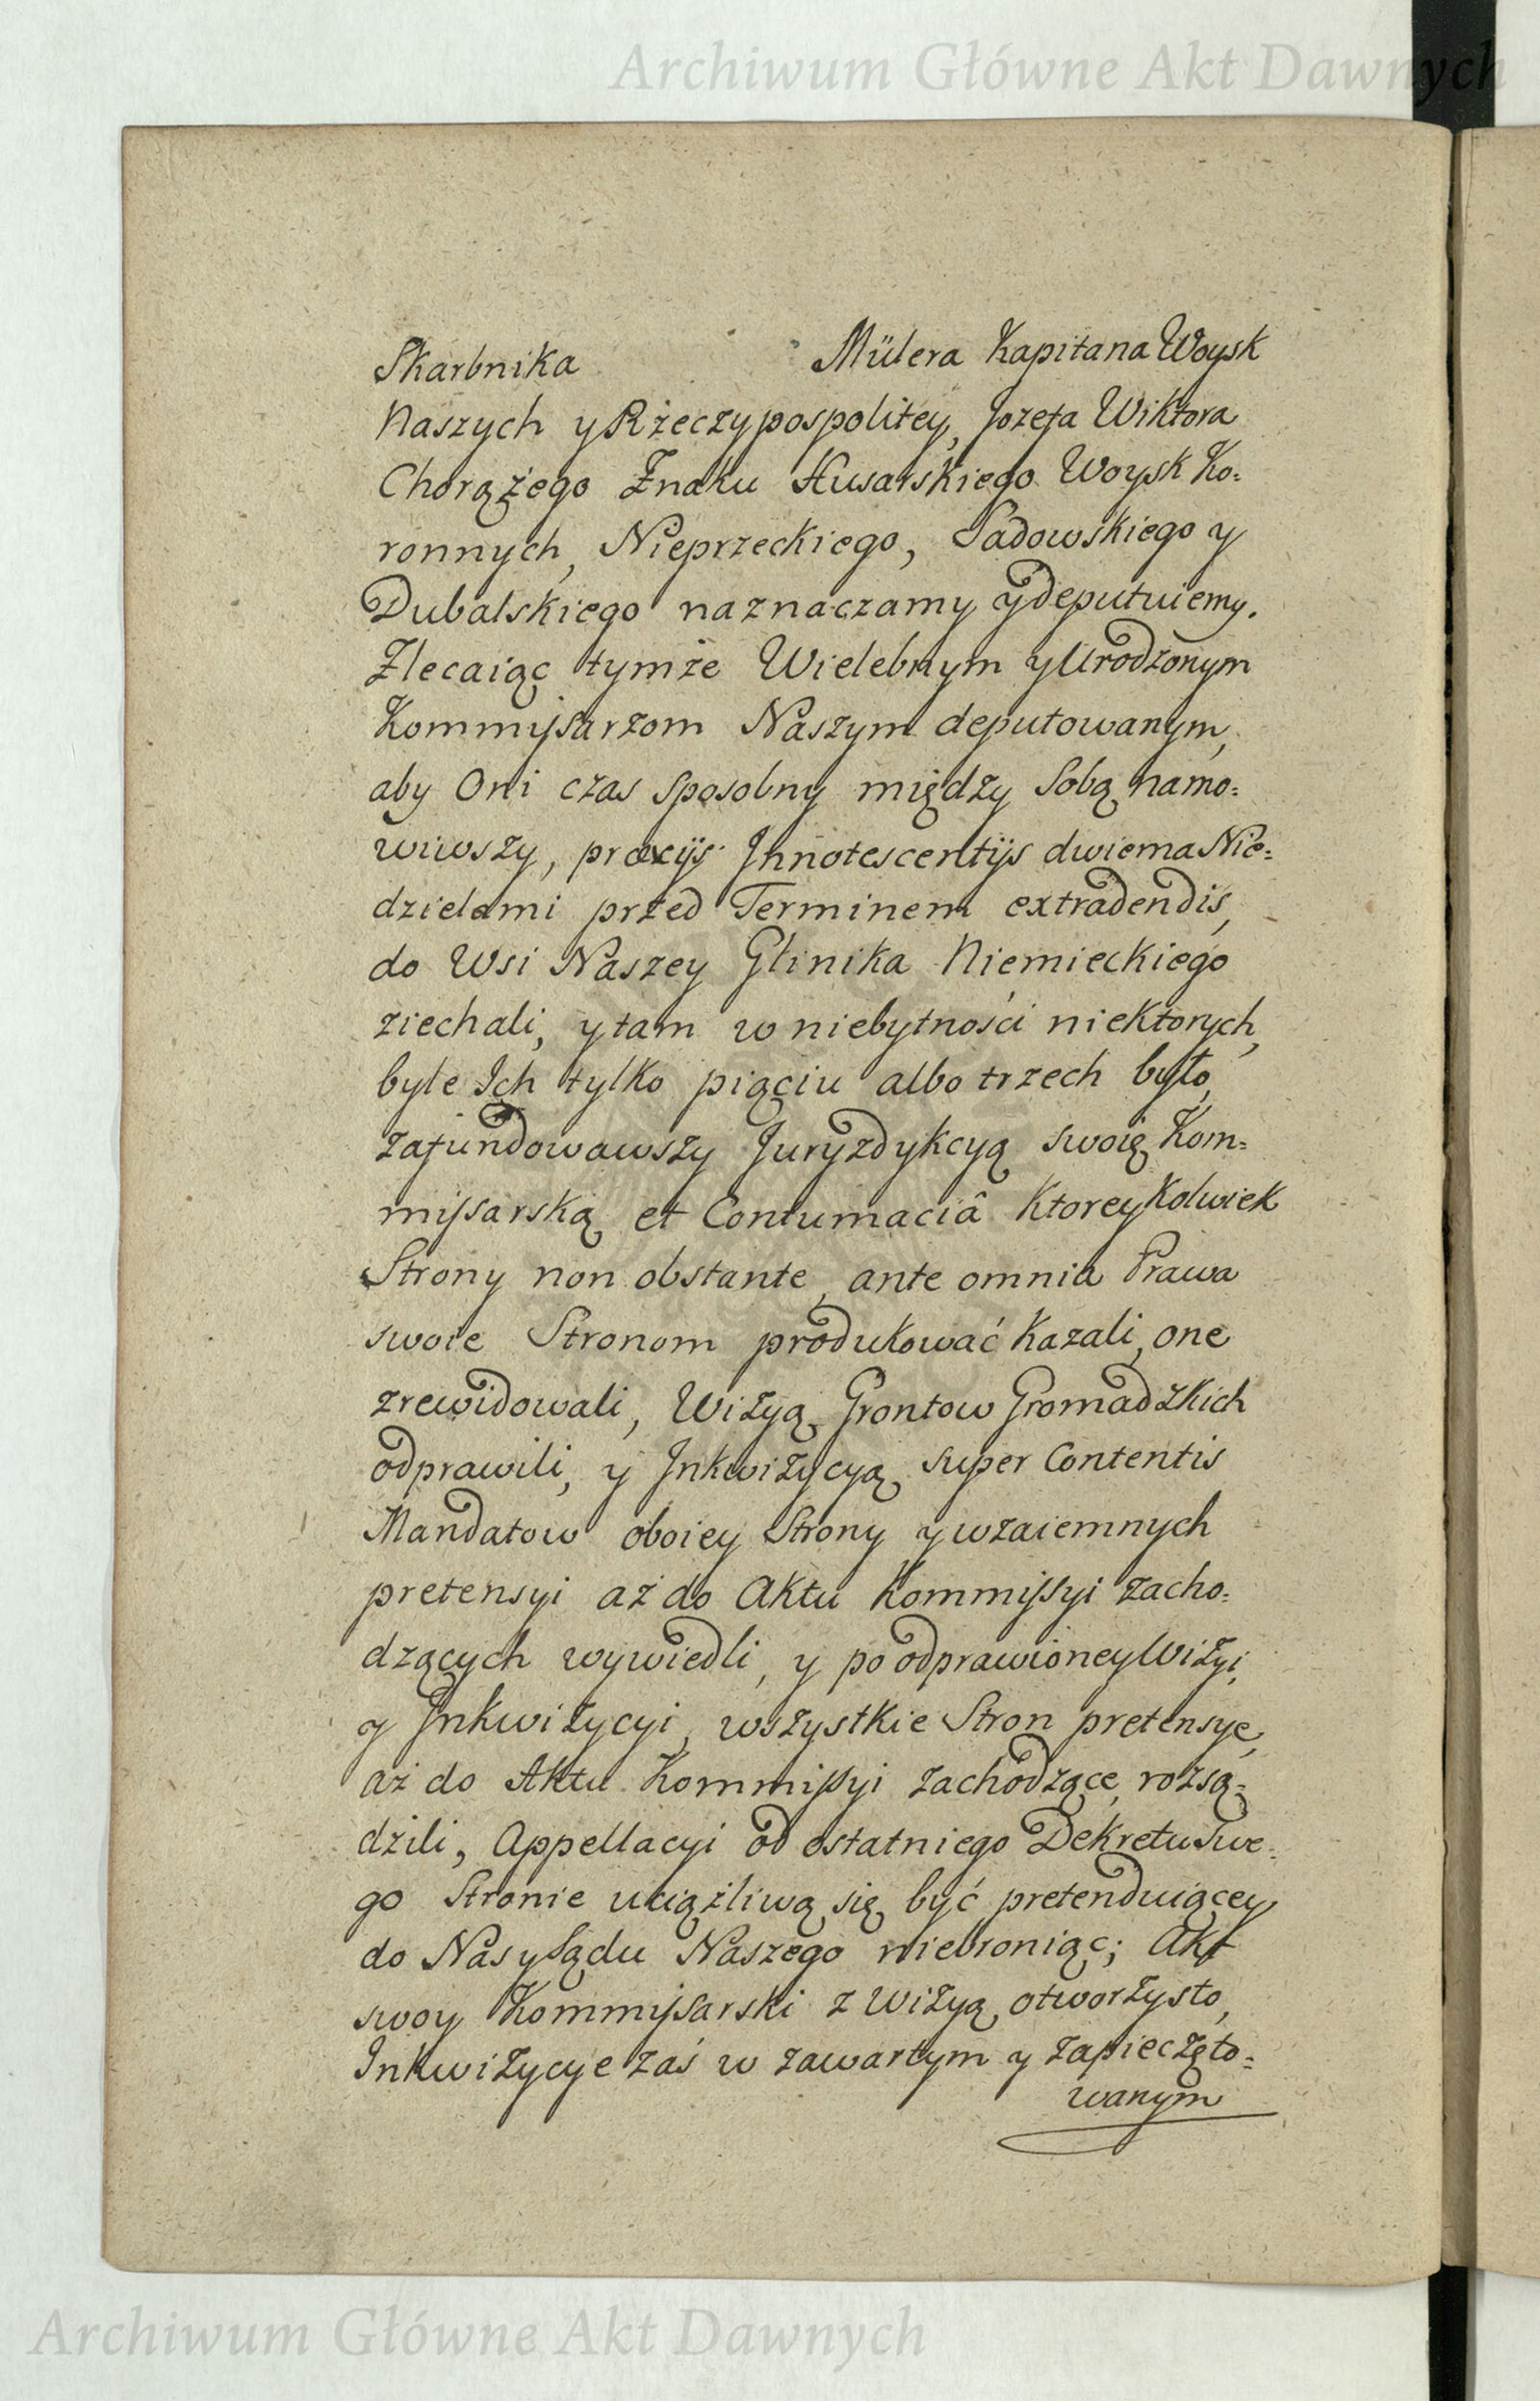 Archiwum Główne Akt Dawnych
Skarbnika Müllera Kapitana Woysk
Naszych y Rżeczypospolitey, Jozefa Wiktora
Chorążego Znaku Husarskiego Woysk Ko=
ronnych, Nieprzeckiego, Sadowskiego y
Dubalskiego naznaczamy y deputuiemy.
Zlecaiąc tymże Wielebnym y Urodzonym
Kommissarzom Naszym deputowanym,
aby Oni czas sposobny między sobą namo=
wiwszy, præviis Innotescentiis dwiema Nie=
dzielami przed Terminem extradendis,
do Wsi Naszey Glinika Niemieckiego
ziechali, y tam w niebytności niektorych,
byle Ich tylko pięciu albo trzech było,
zafundowawszy Juryzdykcyą swoię Kom=
missarską et Contumaciâ ktoreykolwiek
Strony non obstante, ante omnia Prawa
swoie Stronom produkować kazali, one
zrewidowali, Wizyą Grontow Gromadzkich
odprawili, y Inkwizycyą super Contentis
Mandatow oboiey Strony y wzaiemnych
pretensyi aż do Aktu Kommissyi zacho=
dzących wywiedli, y po odprawioney Wizyi,
y Inkwizycyi, wszystkie Stron pretensye,
aż do Aktu Kommissyi zachodzące, rozsą=
dzili, Appellacyi od ostatniego Dekretu swe=
go Stronie uciążliwą się być pretenduiącey
do Nas y Sądu Naszego niebroniąc; Akt
swoy Kommissarski z Wizyą otworzysto,
Inkwizycye zaś w zawartym y zapieczęto=
wanym
Archiwum Główne Akt Dawnych